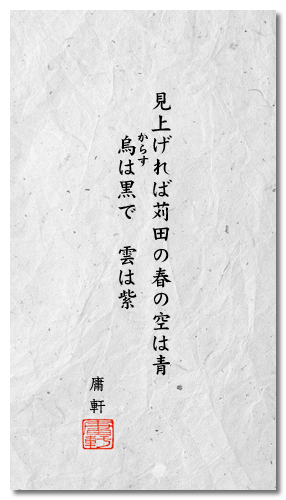 見上げれば苅田の春の空は青
烏は黒で　雲は紫
からす
庸軒